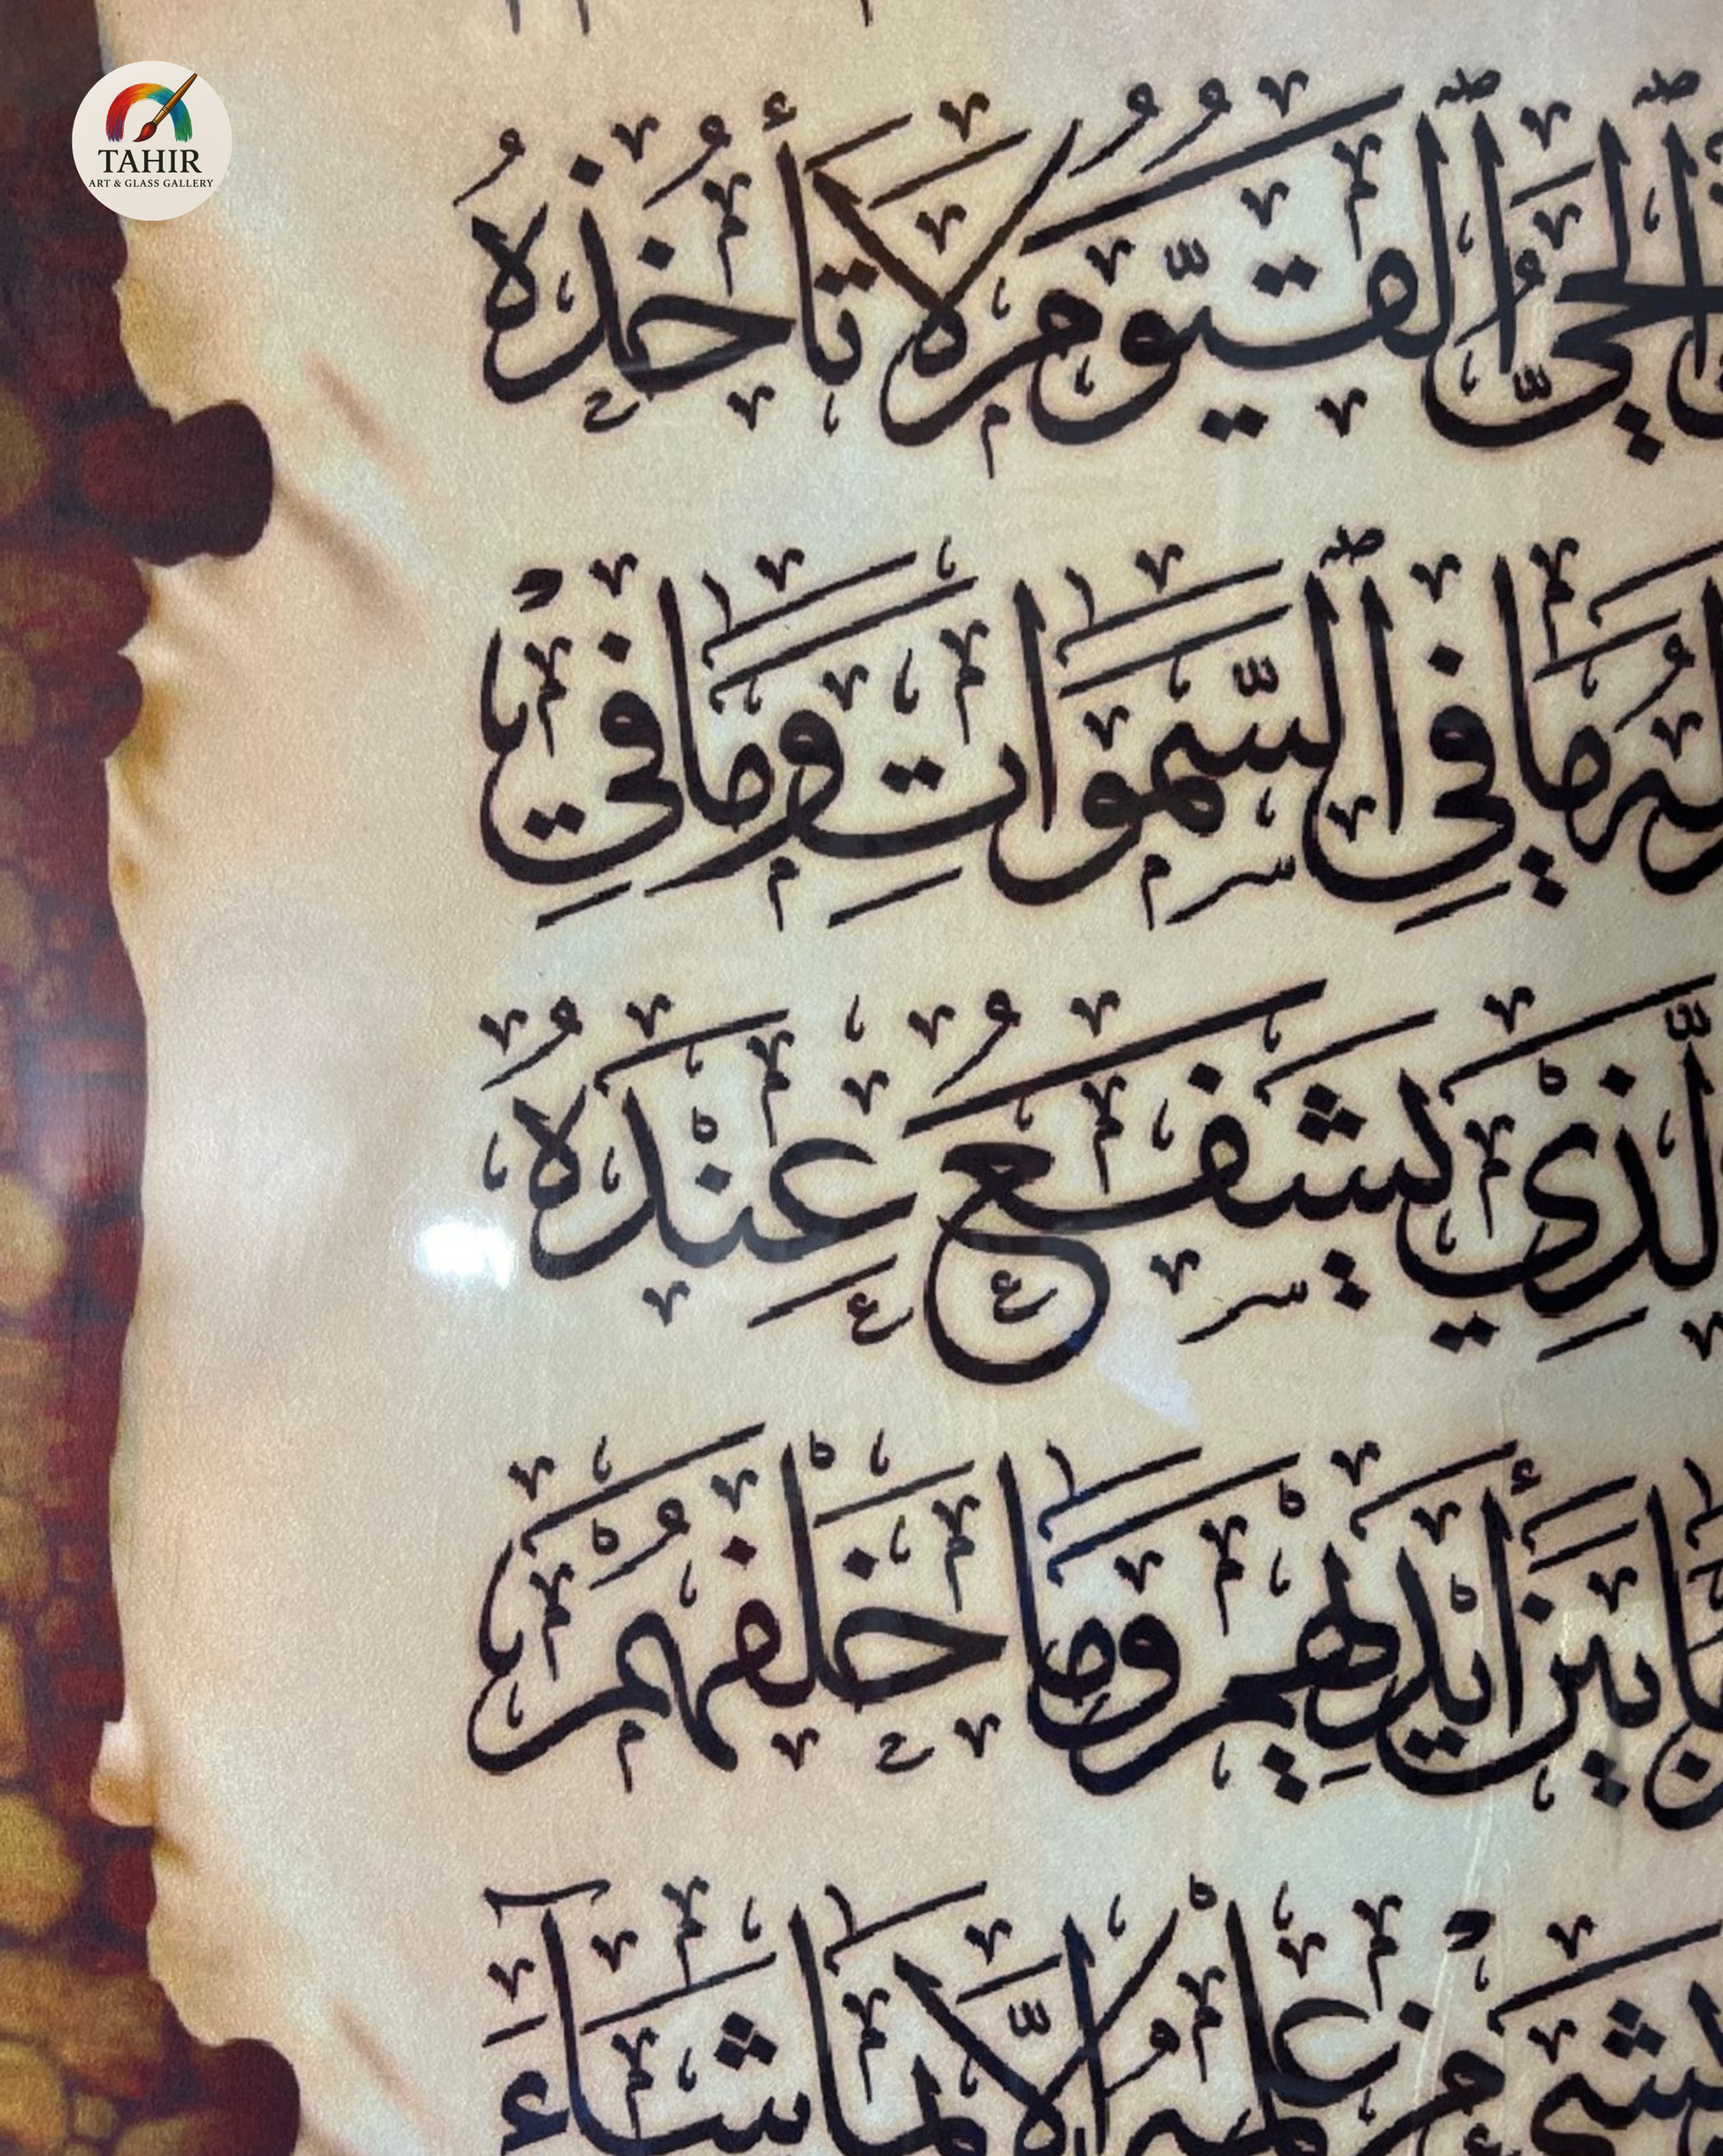 TAHIR
ART & GLASS GALLERY
ٱلْحَيُّ ٱلْقَيُّومُ لَا تَأْخُذُهُ
لَهُ مَا فِي ٱلسَّمَوَاتِ وَمَا فِي
لَّذِي يَشْفَعُ عِنْدَهُ
مَا بَيْنَ أَيْدِيهِمْ وَمَا خَلْفَهُمْ
بِشَيْءٍ مِنْ عِلْمِهِ إِلَّا بِمَا شَآءَ